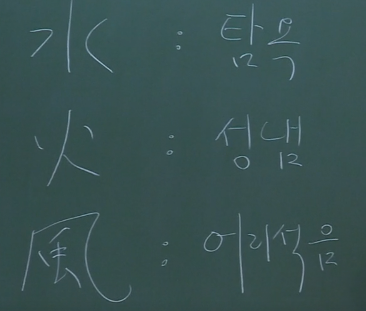 水 : 탐욕
火 : 성냄
風 : 어리석음